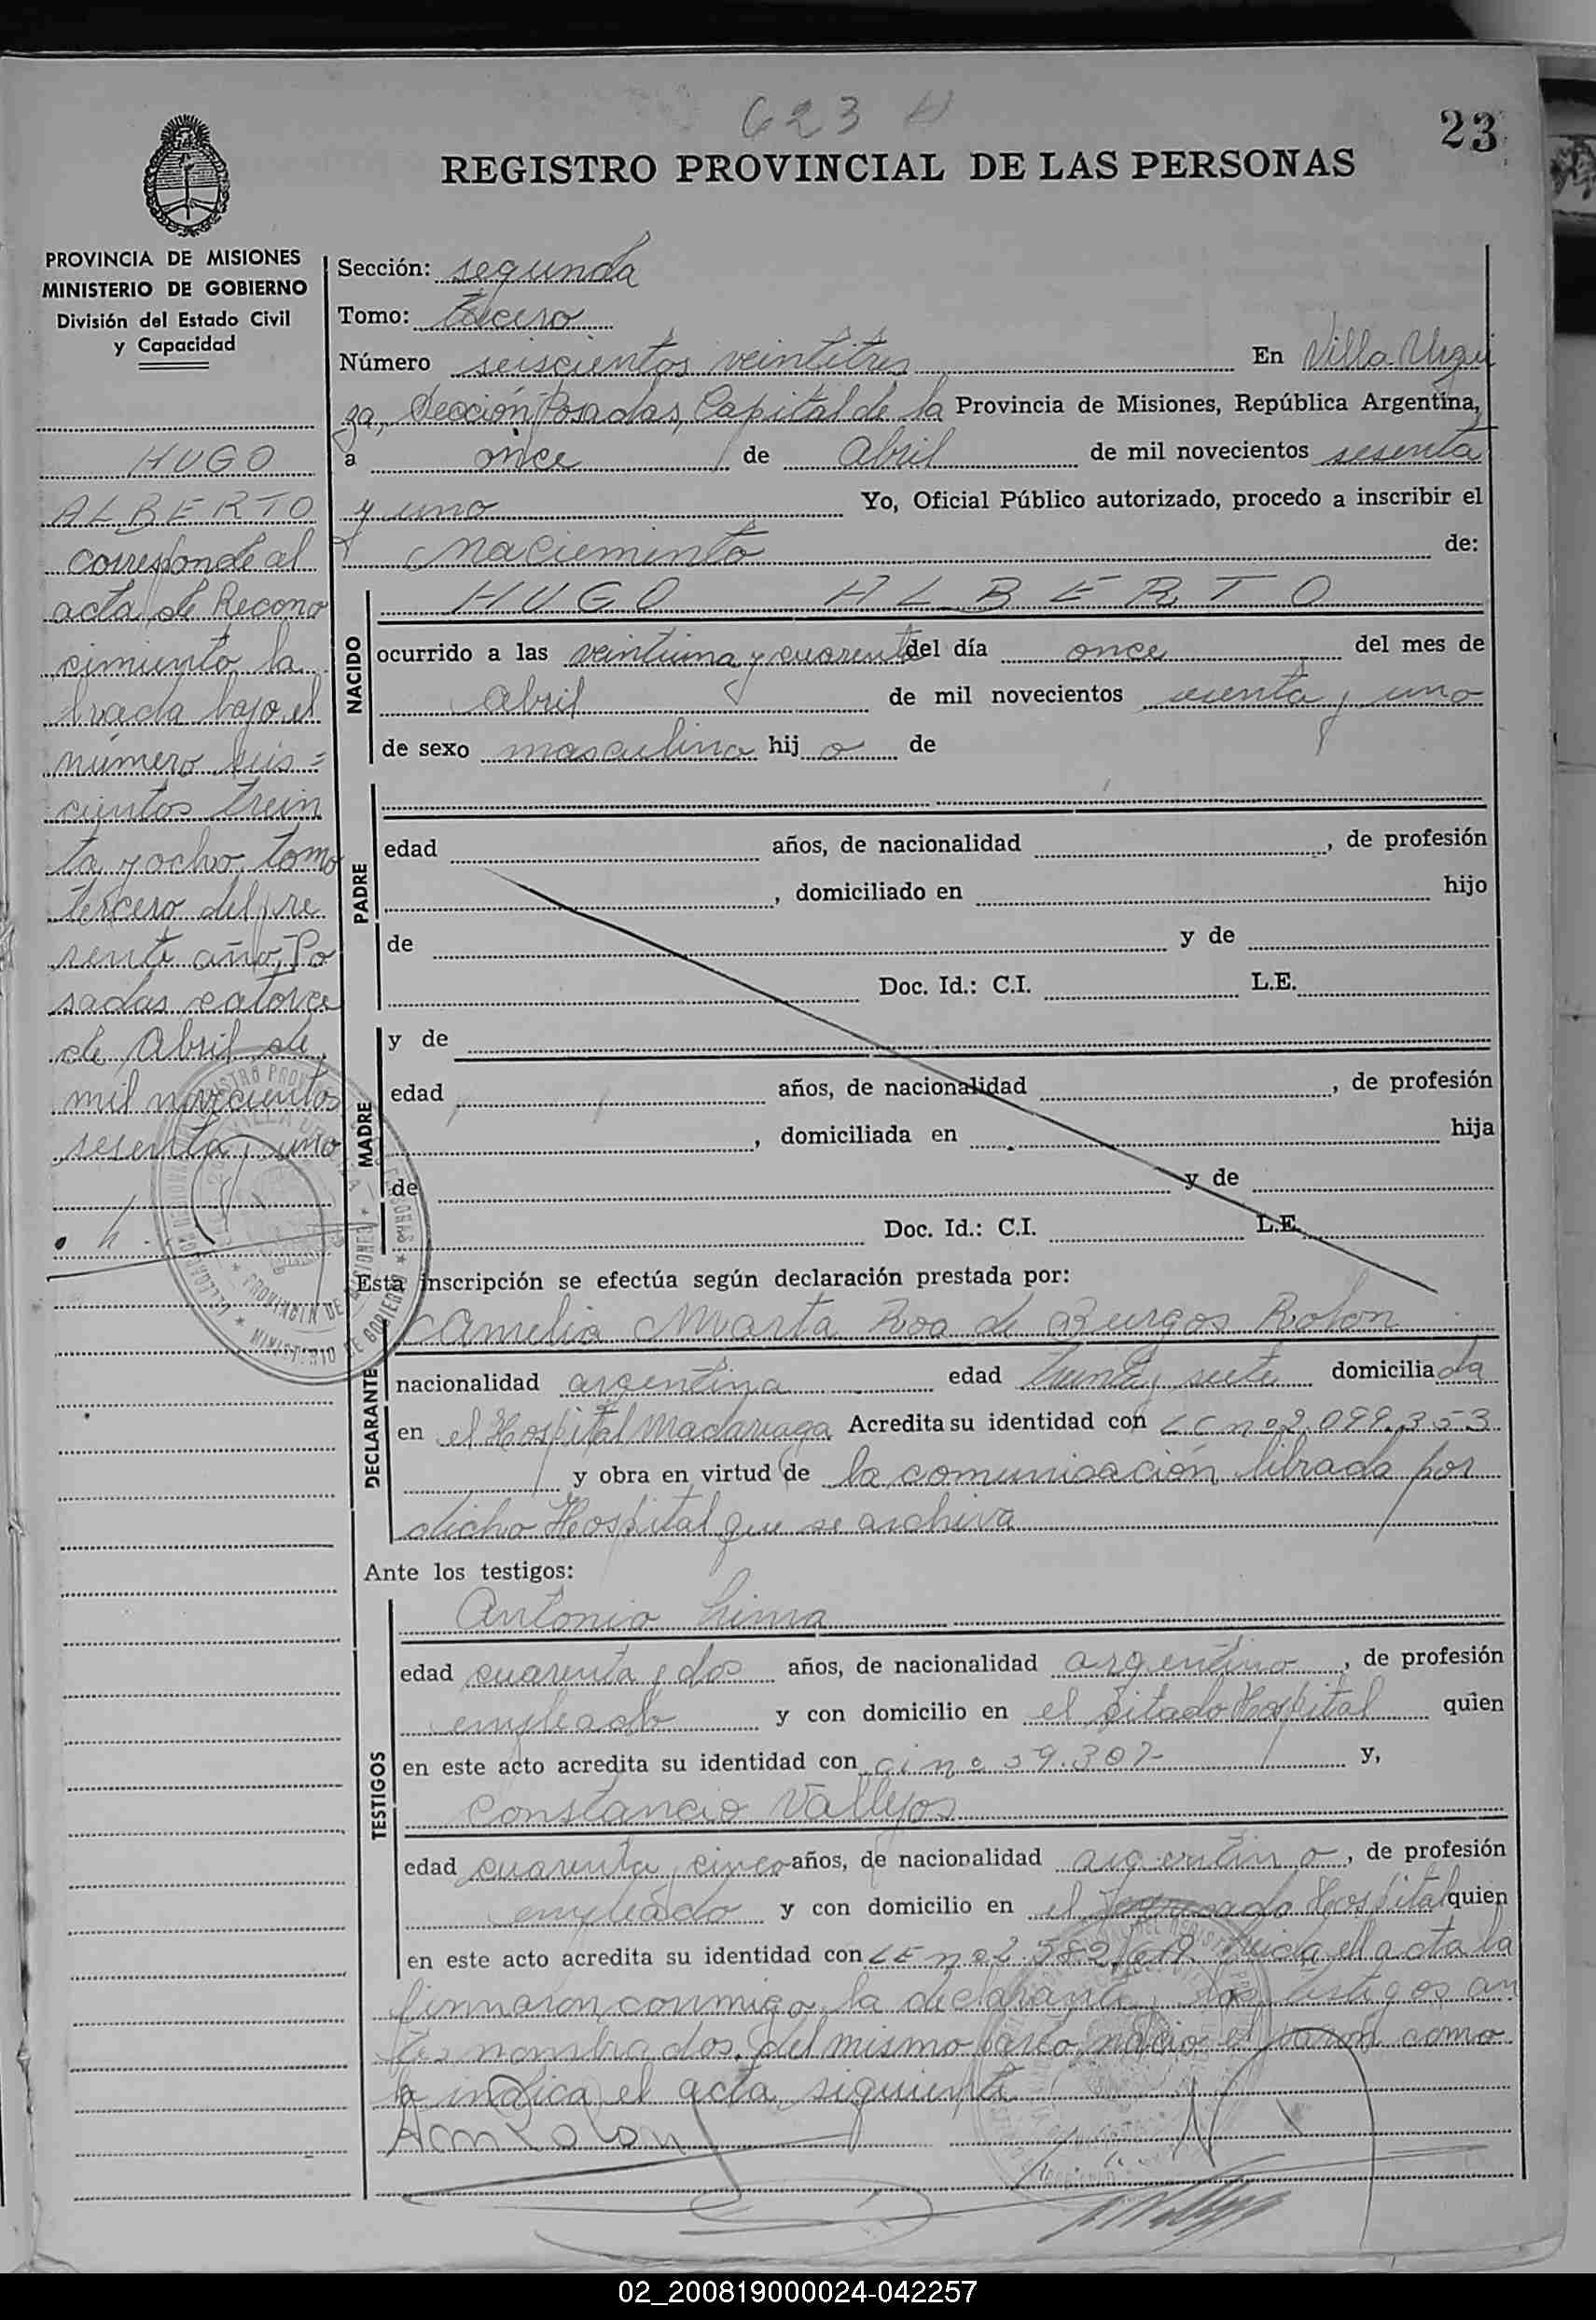 623 H
23
REGISTRO PROVINCIAL DE LAS PERSONAS
PROVINCIA DE MISIONES
MINISTERIO DE GOBIERNO
División del Estado Civil
y Capacidad
HUGO
ALBERTO
corresponde al
acta de Recono
cimiento la
brada bajo el
número seis=
cientos trein
ta y ocho, tomo
tercero del pre
sente año, Po
sadas, catorce
de Abril de
mil novecientos
sesenta y uno
Sección: segunda
Tomo: tercero
Número seiscientos veintitres En Villa Urqui
za, Sección Posadas, Capital de la Provincia de Misiones, República Argentina,
a once de Abril de mil novecientos sesenta
y uno Yo, Oficial Público autorizado, procedo a inscribir el
Naciemiento de:
NACIDO
HUGO ALBERTO
ocurrido a las veintiuna y cuarenta del día once del mes de
Abril de mil novecientos sesenta y uno
de sexo masculino hij o de
PADRE
edad años, de nacionalidad , de profesión
, domiciliado en hijo
de y de
Doc. Id.: C.I. L.E.
MADRE
y de
edad años, de nacionalidad , de profesión
, domiciliada en hija
de y de
Doc. Id.: C.I. L.E.
Esta inscripción se efectúa según declaración prestada por:
DECLARANTE
Amelia Marta Roa de Burgos Rolon
nacionalidad argentina edad treinta y siete domiciliada
en el Hospital Madariaga Acredita su identidad con LC nº 2.099.353
y obra en virtud de la comunicación librada por
dicho Hospital que se archiva
Ante los testigos:
TESTIGOS
Antonio Lima
edad cuarenta y dos años, de nacionalidad argentino, de profesión
empleado y con domicilio en el citado Hospital quien
en este acto acredita su identidad con ci nº 39.307- y,
Constancio Vallejos
edad cuarenta y cinco años, de nacionalidad argentino, de profesión
empleado y con domicilio en el Hospital quien
en este acto acredita su identidad con LE nº 2.582. leida el acta la
firmaron conmigo la declarante y los testigos an
tes nombrados. del mismo parto nacio el varon como
lo indica el acta siguiente
02_200819000024-042257